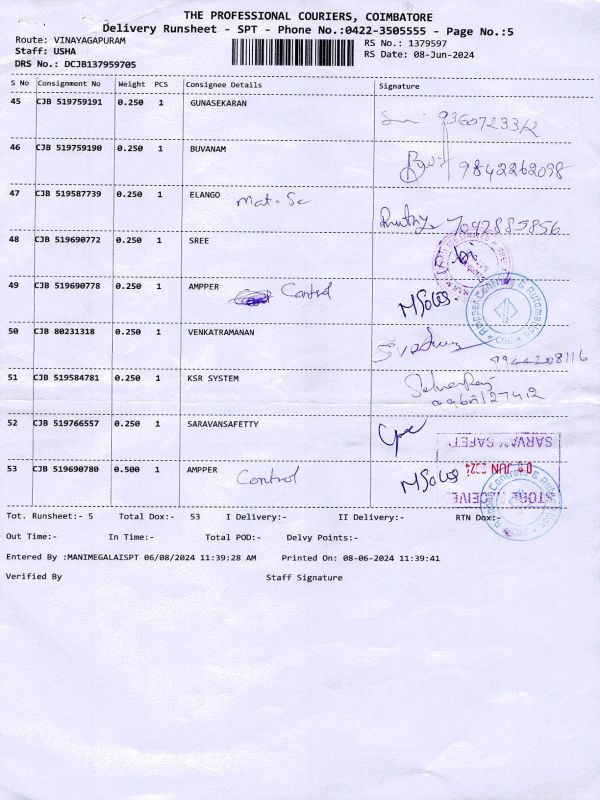 THE PROFESSIONAL COURIERS, COIMBATORE
Delivery Runsheet - SPT - Phone No.:0422-3505555 - Page No.:5
Route: VINAYAGAPURAM RS No.: 1379597
Staff: USHA RS Date: 08-Jun-2024
DRS No.: DCJB137959705
S No Consignment No Weight PCS Consignee Details Signature
45 CJB 519759191 0.250 1 GUNASEKARAN
46 CJB 519759190 0.250 1 BUVANAM 9842262098
47 CJB 519587739 0.250 1 ELANGO
48 CJB 519690772 0.250 1 SREE
49 CJB 519690778 0.250 1 AMPPER Control
Ampper Controls & Automation
CBE
50 CJB 80231318 0.250 1 VENKATRAMANAN
9944208116
51 CJB 519584781 0.250 1 KSR SYSTEM
52 CJB 519766557 0.250 1 SARAVANSAFETTY
SARVAN SAFETY
53 CJB 519690780 0.500 1 AMPPER Control
JUN 2024
Tot. Runsheet:- 5 Total Dox:- 53 I Delivery:- II Delivery:- RTN Dox:-
Out Time:- In Time:- Total POD:- Delvy Points:-
Entered By :MANIMEGALAISPT 06/08/2024 11:39:28 AM Printed On: 08-06-2024 11:39:41
Verified By Staff Signature